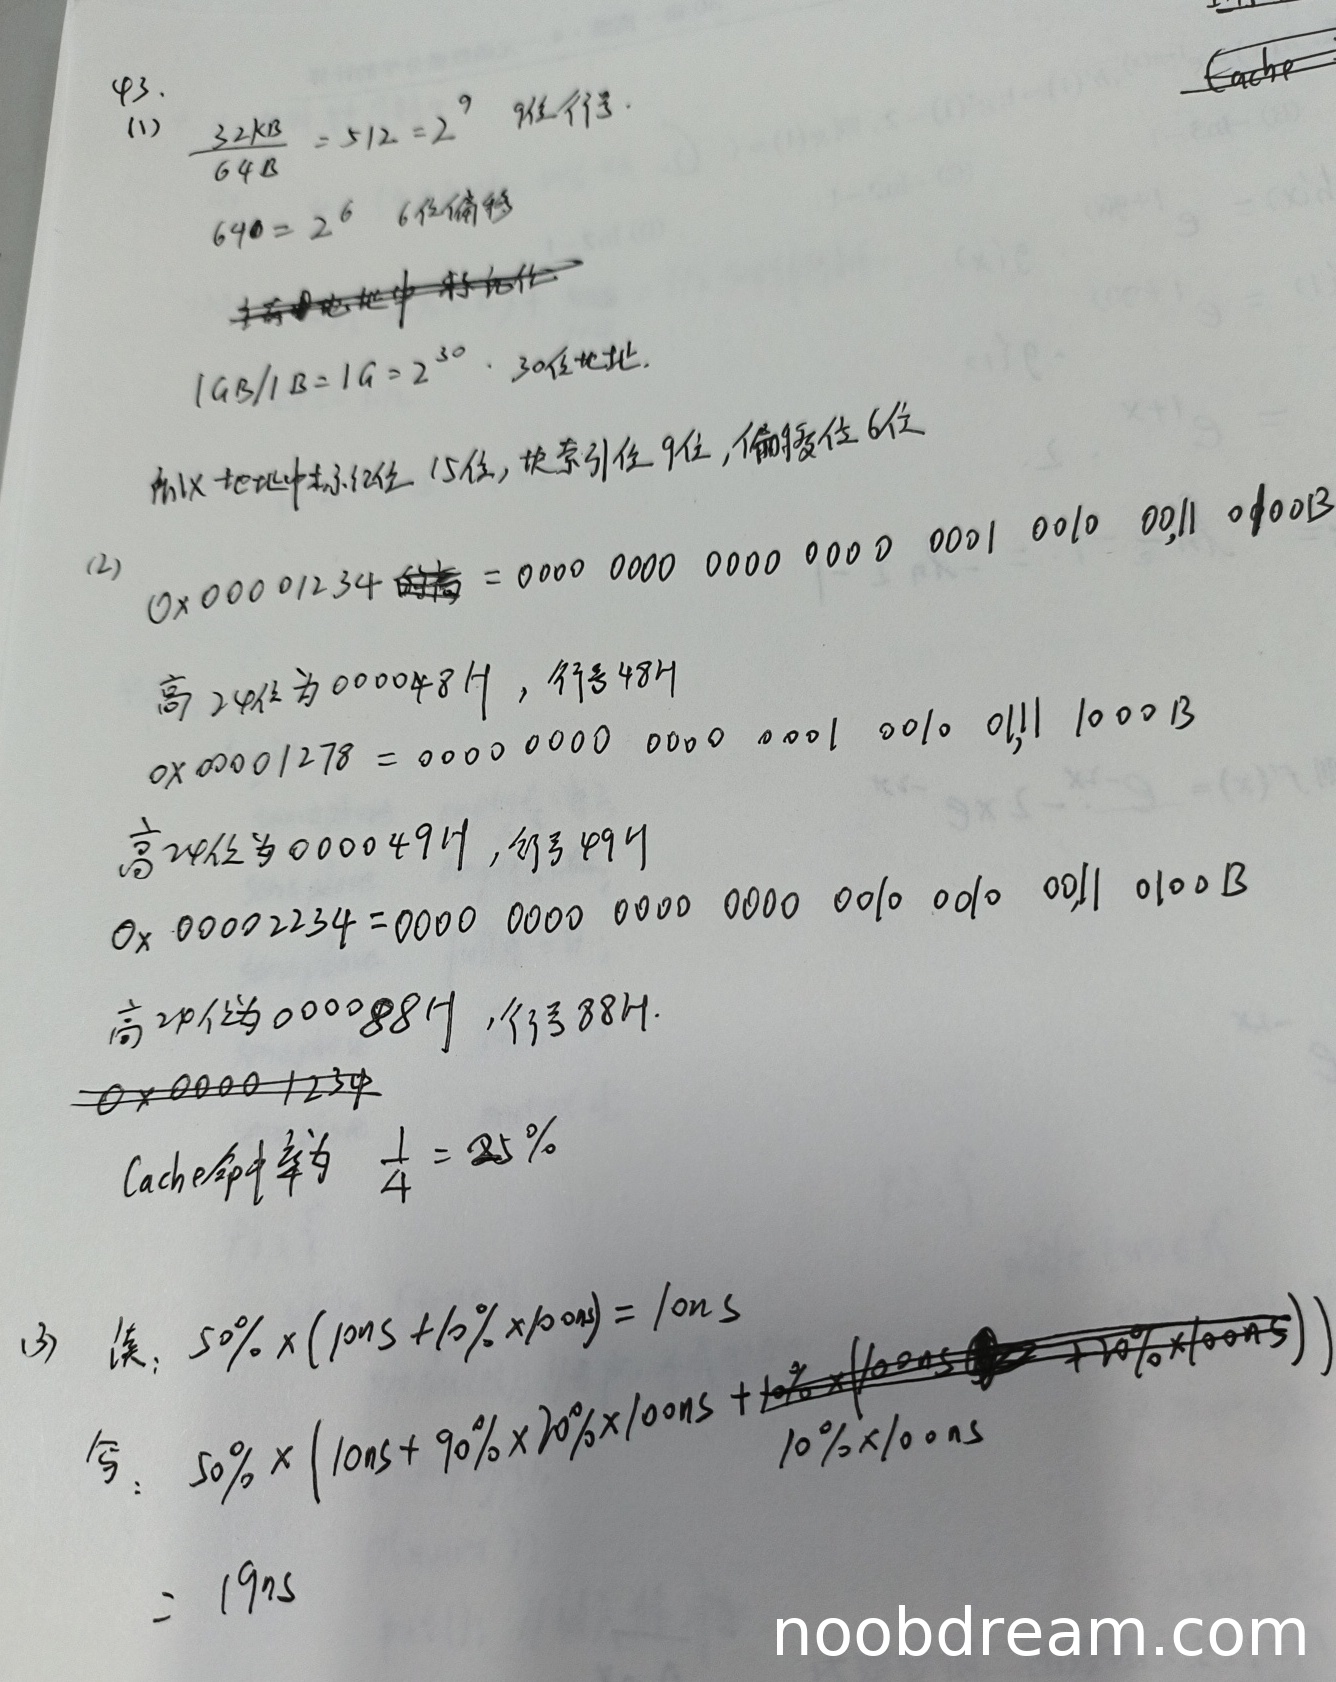 43.
(1) 32KB/64B = 512 = 2^9 9位行号.
640 = 2^6 6位偏移
1GB/1B = 1G = 2^30. 30位地址.
所以地址中标记位15位,块索引位9位,偏移位6位
(2) 0x00001234 = 0000 0000 0000 0000 0001 0010 0011 0100B
高24位为000048H,行号48H
0x00001278 = 0000 0000 0000 0001 0010 0111 1000B
高24位为000049H,行号49H
0x00002234 = 0000 0000 0000 0000 0010 0010 0011 0100B
高24位为000088H,行号88H.
0x00001234
Cache命中率为 1/4 = 25%
(3) 读: 50% × (10ns + 10% × 100ns) = 10ns
写: 50% × (10ns + 90% × 20% × 100ns + 10% × 100ns)
= 19ns
Cache
noobdream.com